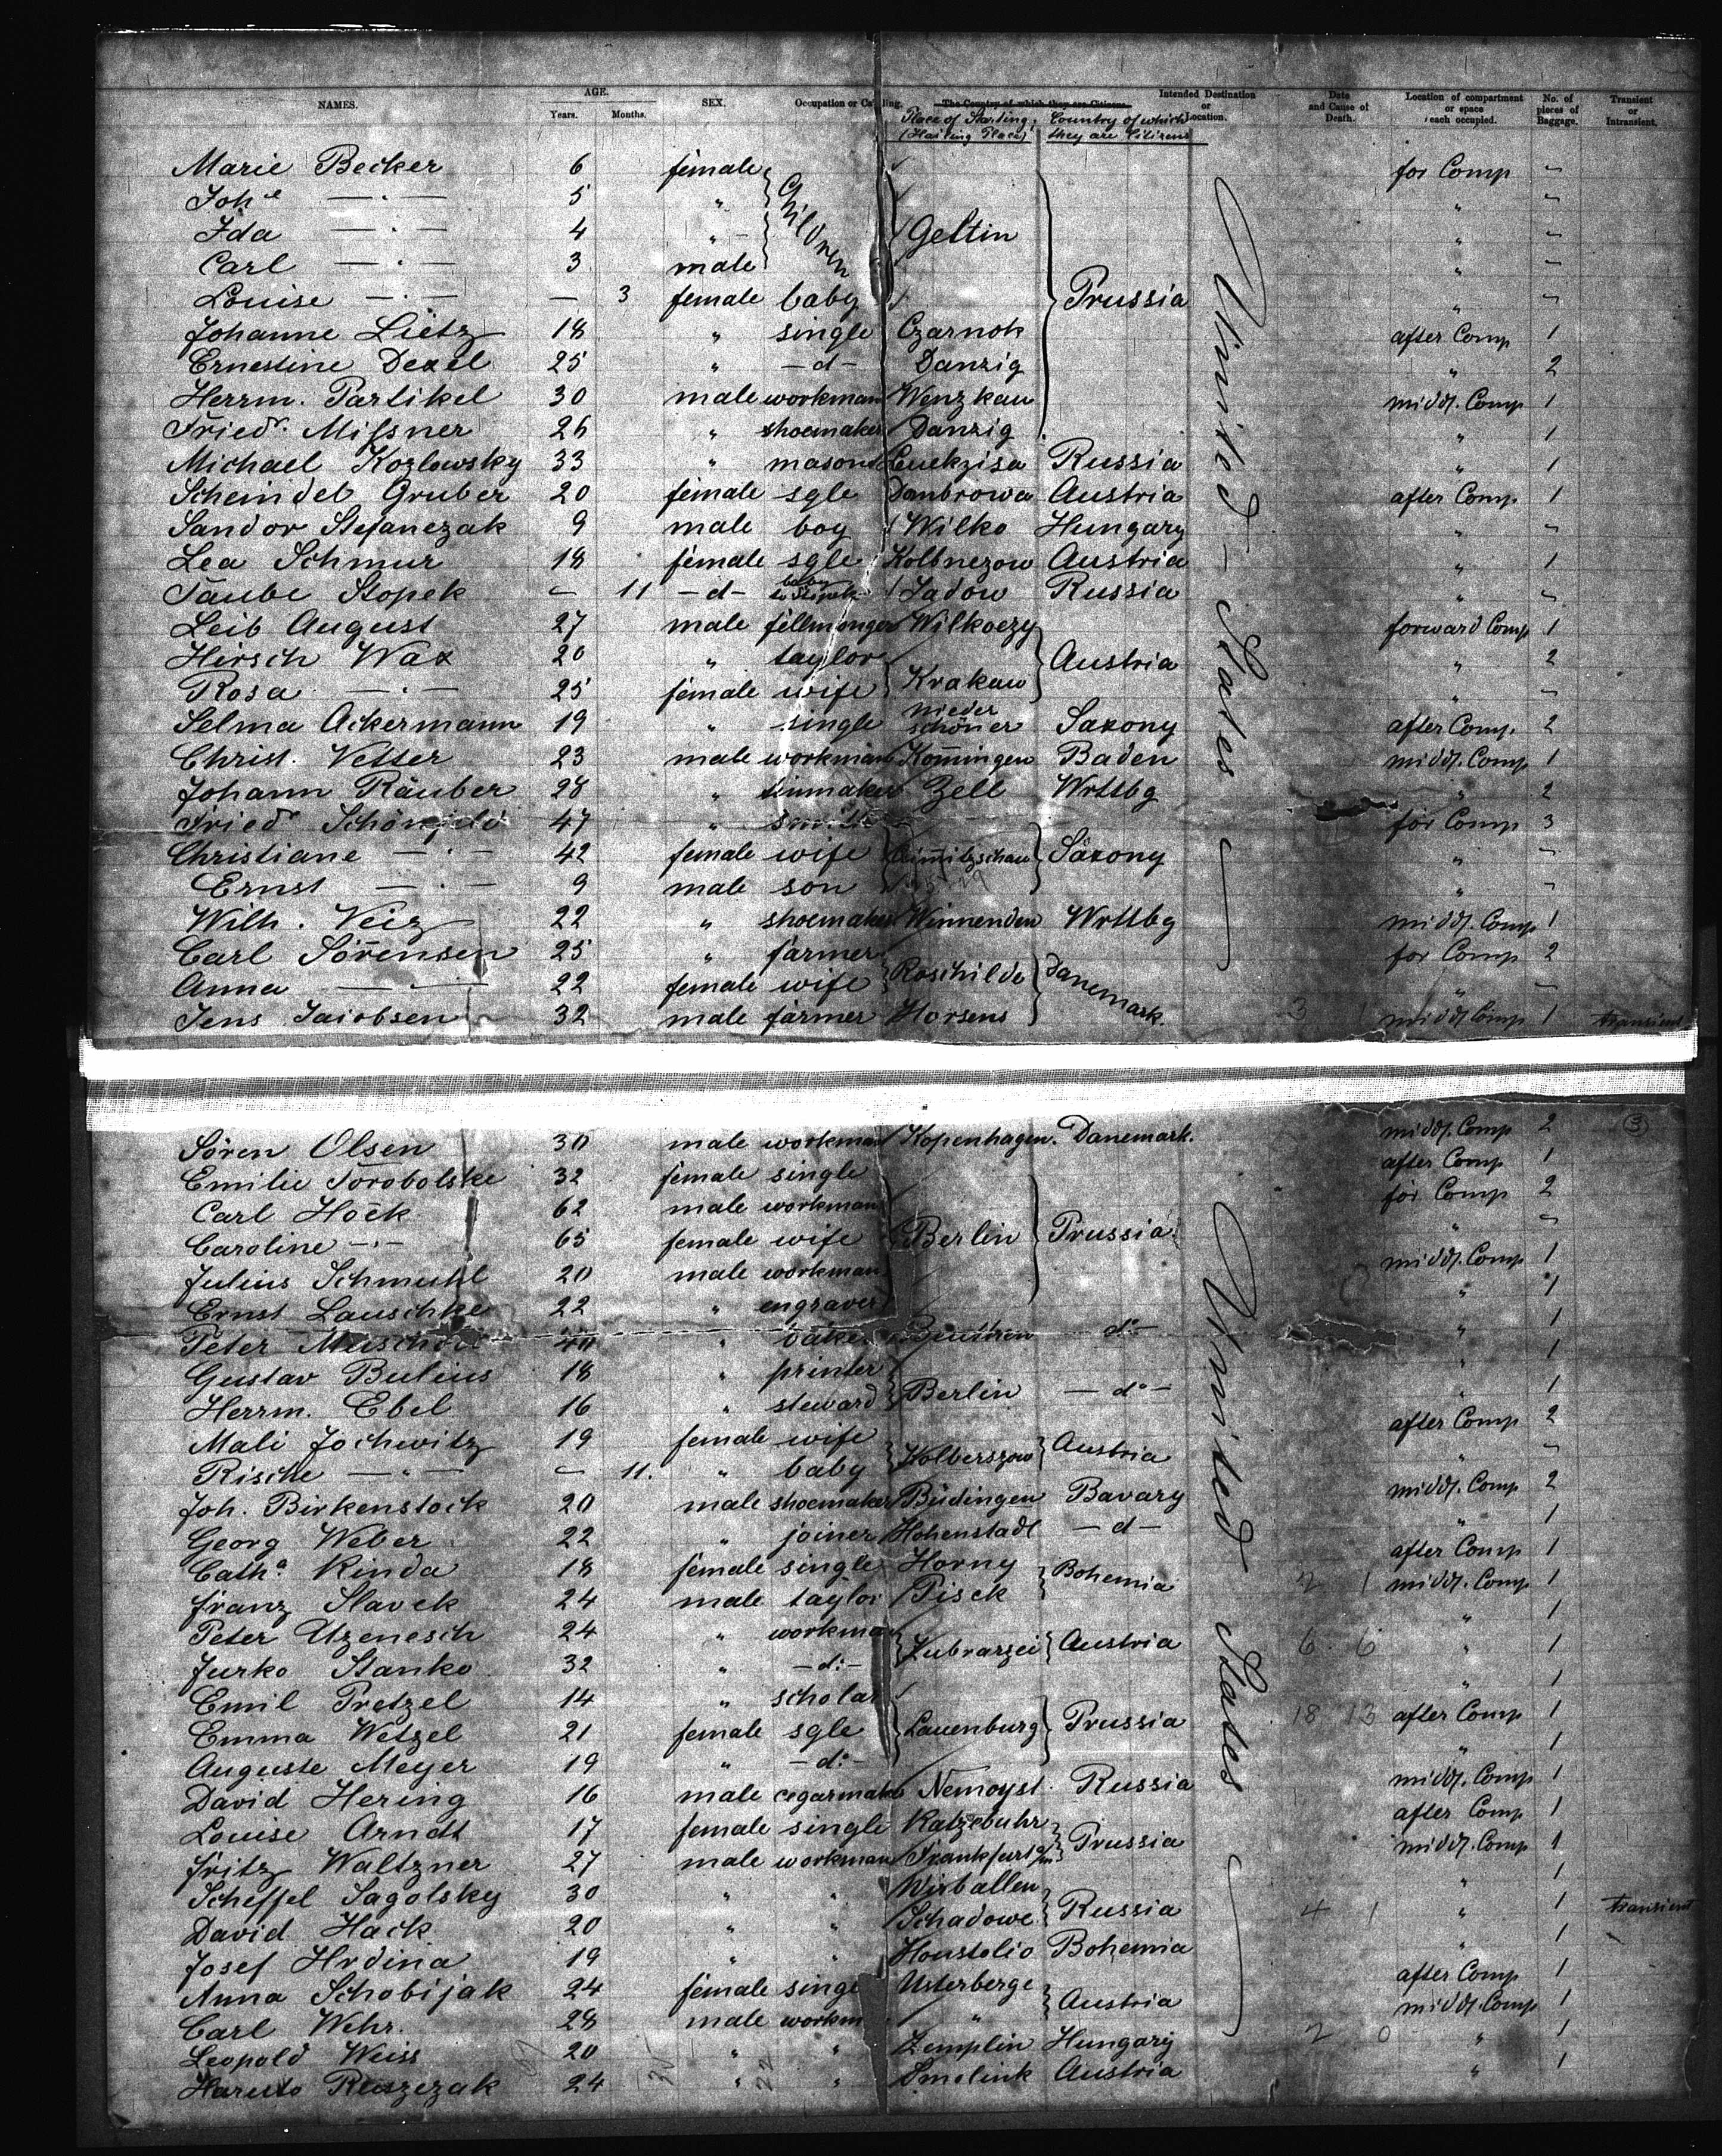 NAMES. AGE. Years. Months. SEX. Occupation or Calling. The Country of which they are Citizens Intended Destination or Location. Date and Cause of Death. Location of compartment or space each occupied. No. of pieces of Baggage. Transient or Intransient.
Place of Starting, (Hailing Place) Country of which they are Citizens
Marie Becker 6 female Children Geltin Prussia United States for Comp "
Johe — " — 5 " " "
Ida — " — 4 " " "
Carl — " — 3 male " "
Louise — " — — 3 female baby " "
Johanne Lietz 18 " single Czarnok after Comp 1
Ernestine Dexel 25 " — d — Danzig " 2
Herrm. Partikel 30 male workman Wenzkau middl. Comp 1
Friedr. Missner 26 " shoemaker Danzig " 1
Michael Kozlowsky 33 " mason Russia " 1
Scheindel Gruber 20 female sgle Dombrowa Austria after Comp 1
Sandor Stefanezak 9 male boy Wilko Hungary " "
Lea Schmur 18 female sgle Kolbnezow Austria " 1
Taube Stopek — 11 — d — baby Sadow Russia " "
Leib August 27 male fellmonger Wilkoezy Austria forward Comp 1
Hirsch Wax 20 " taylor Krakau " 2
Rosa — " — 25 female wife " "
Selma Ackermann 19 " single Nieder schöner Saxony after Comp. 2
Christ. Vetter 23 male workman Kom̄ingen Baden middl. Comp 1
Johann Räuber 28 " tinmaker Zell Wrttbg " 2
Friedr 47 " smith Saxony for Comp 3
Christiane — " — 42 female wife " "
Ernst — " — 9 male son " "
Wilh. Veiz 22 " shoemaker Winnenden Wrttbg middl. Comp 1
Carl Sörensen 25 " farmer Roschilde Danemark. for Comp 2
Anna — " — 22 female wife " "
Jens Jacobsen 32 male farmer Horsens 3 1 middl Comp 1 transient
Sören Olsen 30 male workman Kopenhagen. Danemark. middl. Comp 2 3
Emilie Torobolske 32 female single Berlin Prussia United States after Comp 1
Carl Höck 62 male workman for Comp 2
Caroline — " — 65 female wife " "
Julius Schmuhl 20 male workman middl. Comp 1
Ernst Lauschke 22 " engraver " 1
Peter 40 " baker — do — " 1
Gustav Bulius 18 " printer Berlin — do — " 1
Herrm. Ebel 16 " steward " 1
Mali Jochewitz 19 female wife Kolberszow Austria after Comp 2
Rische — " — — 11. " baby " "
Joh. Birkenstock 20 male shoemaker Büdingen Bavary middl. Comp 2
Georg Weber 22 " joiner Hohenstadt — d — " 1
Catha. Kinda 18 female single Horny Bohemia after Comp 1
Franz Slavek 24 male taylor Pisek 2 1 middl. Comp 1
Peter Uzenesch 24 " workman Zubrarzei Austria " 1
Jurko Stanko 32 " — do — 6 6 " 1
Emil Pretzel 14 " scholar Lauenburg Prussia " 1
Emma Wetzel 21 female sgle 18 13 after Comp 1
Auguste Meyer 19 " — do — " 1
David Hering 16 male cegarmaker Nemoyst. Russia middl. Comp 1
Louise Arndt 17 female single Ratzebuhr Prussia after Comp 1
Fritz Waltzner 27 male workman Frankfurt a/m middl. Comp 1
Scheffel Sagolsky 30 " " Wirballen Russia " 1
David Hack 20 " " Schadowe 4 1 " 1 transient
Josef Hrdina 19 " " Houstolio Bohemia " 1
Anna Schobijak 24 female singe Usterberge Austria after Comp 1
Carl Wehr. 28 male workm " middl. Comp 1
Leopold Weiss 20 " " Zemplin Hungary 2 0 " 1
24 " " Smolink Austria " 1